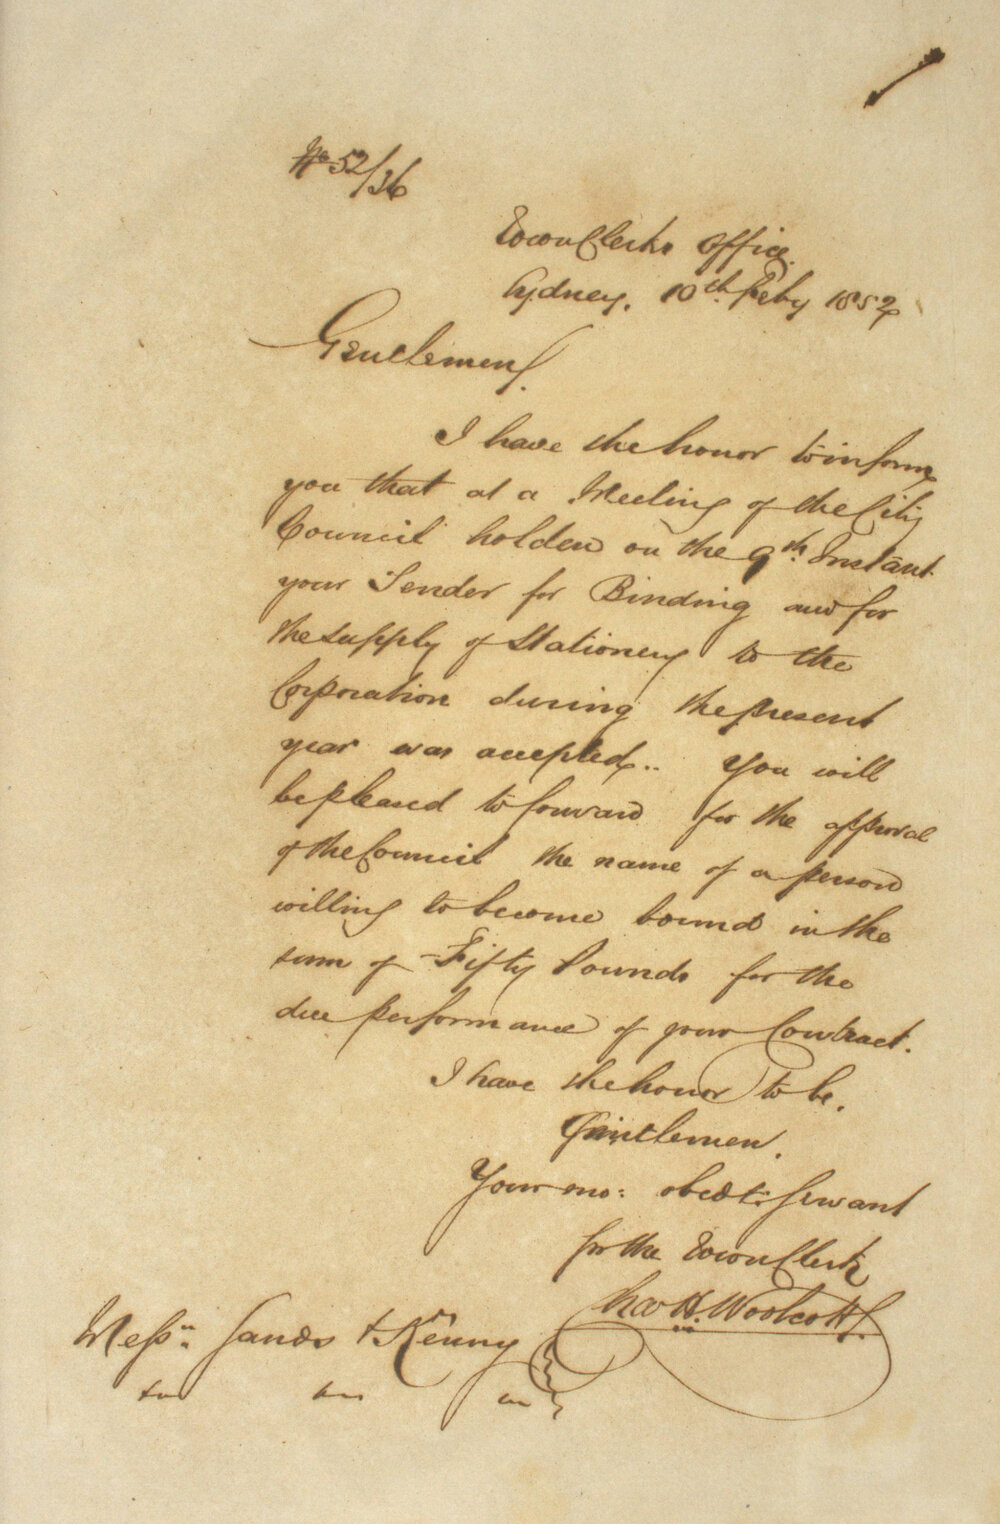 No 52/36
Town Clerks Office.
Sydney. 10th Feby 1852
Gentlemen.
I have the honor to inform
you that at a Meeting of the City
Council holden on the 9th. Instant.
your Tender for Binding and for
the supply of Stationery to the
Corporation during the present
year was accepted.. You will
be pleased to forward for the approval
of the Council the name of a person
willing to become bound in the
sum of Fifty Pounds for the
due performance of your Contract.
I have the honor to be.
Gentlemen.
Your mo: obedt. Servant
for the Town Clerk
Chas H. Woolcott.
Messrs. Sands & Kenny